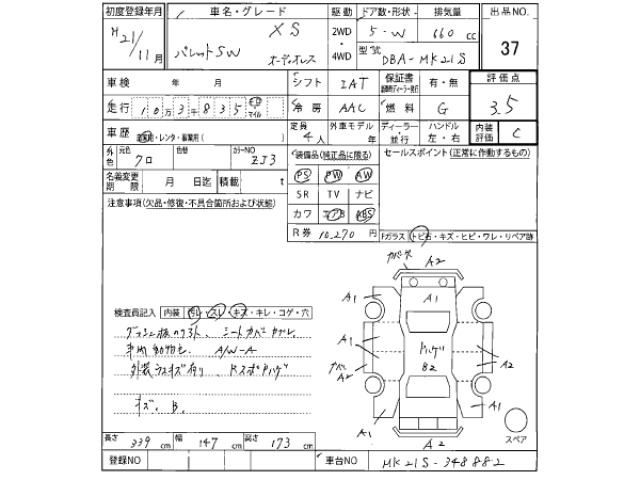 初度登録年月 車名・グレード 駆動 ドア数・形状 排気量 出品NO.
H21/11月 パレットSW XS オーディオレス 2WD・4WD 5-W 660cc 37
型式 DBA-MK21S
車検 年 月 シフト IAT 保証書 有・無 評価点
走行 10万3千835 km マイル 冷房 AAC 燃料 G 3.5
車歴 自家用・レンタ・事業用( ) 定員 4人 外車モデル 年 ディーラー・並行 ハンドル 左・右 内装評価 C
外色 元色 クロ 色替 カラーNO ZJ3 装備品(純正品に限る) セールスポイント(正常に作動するもの)
名義変更期限 月 日迄 積載 t PS PW AW
注意事項(欠品・修復・不具合箇所および状態) SR TV ナビ
カワ エアB ABS
R券 10,270円 Fガラス トビ石・キズ・ヒビ・ワレ・リペア跡
A2
A1 A1 A1
検査員記入 内装 ヨレ・スレ・キズ・キレ・コゲ・穴
シートカバー
A/W-A
A1 ハゲ B2 A2
A2
キズ、B。
A1 A1
A2
スペア
長さ 339cm 幅 147cm 高さ 173cm
登録NO 車台NO MK21S-348882